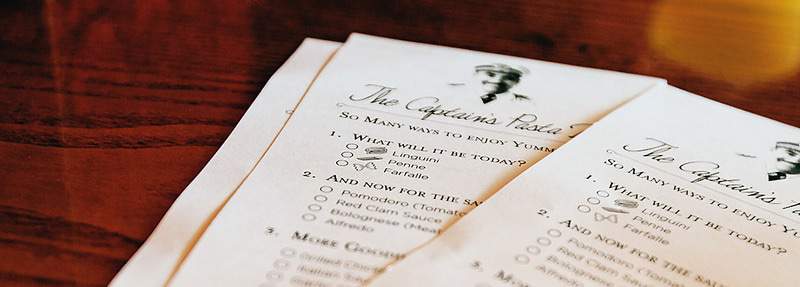 The Captain's Pasta
So Many ways to enjoy Yumm
1. What will it be today?
Linguini
Penne
Farfalle
2. And now for the sa
Pomodoro (Tomato
Red Clam Sauce
Bolognese (Mea
Alfredo
3. More Good
Grilled
Italian
The Captain's Pa
So Many ways to enjoy Yumm
1. What will it be today?
Linguini
Penne
Farfalle
2. And now for the sau
Pomodoro (Tomato
Red Clam Sauce
Bolognese (Meat
Alfredo
3. Mo